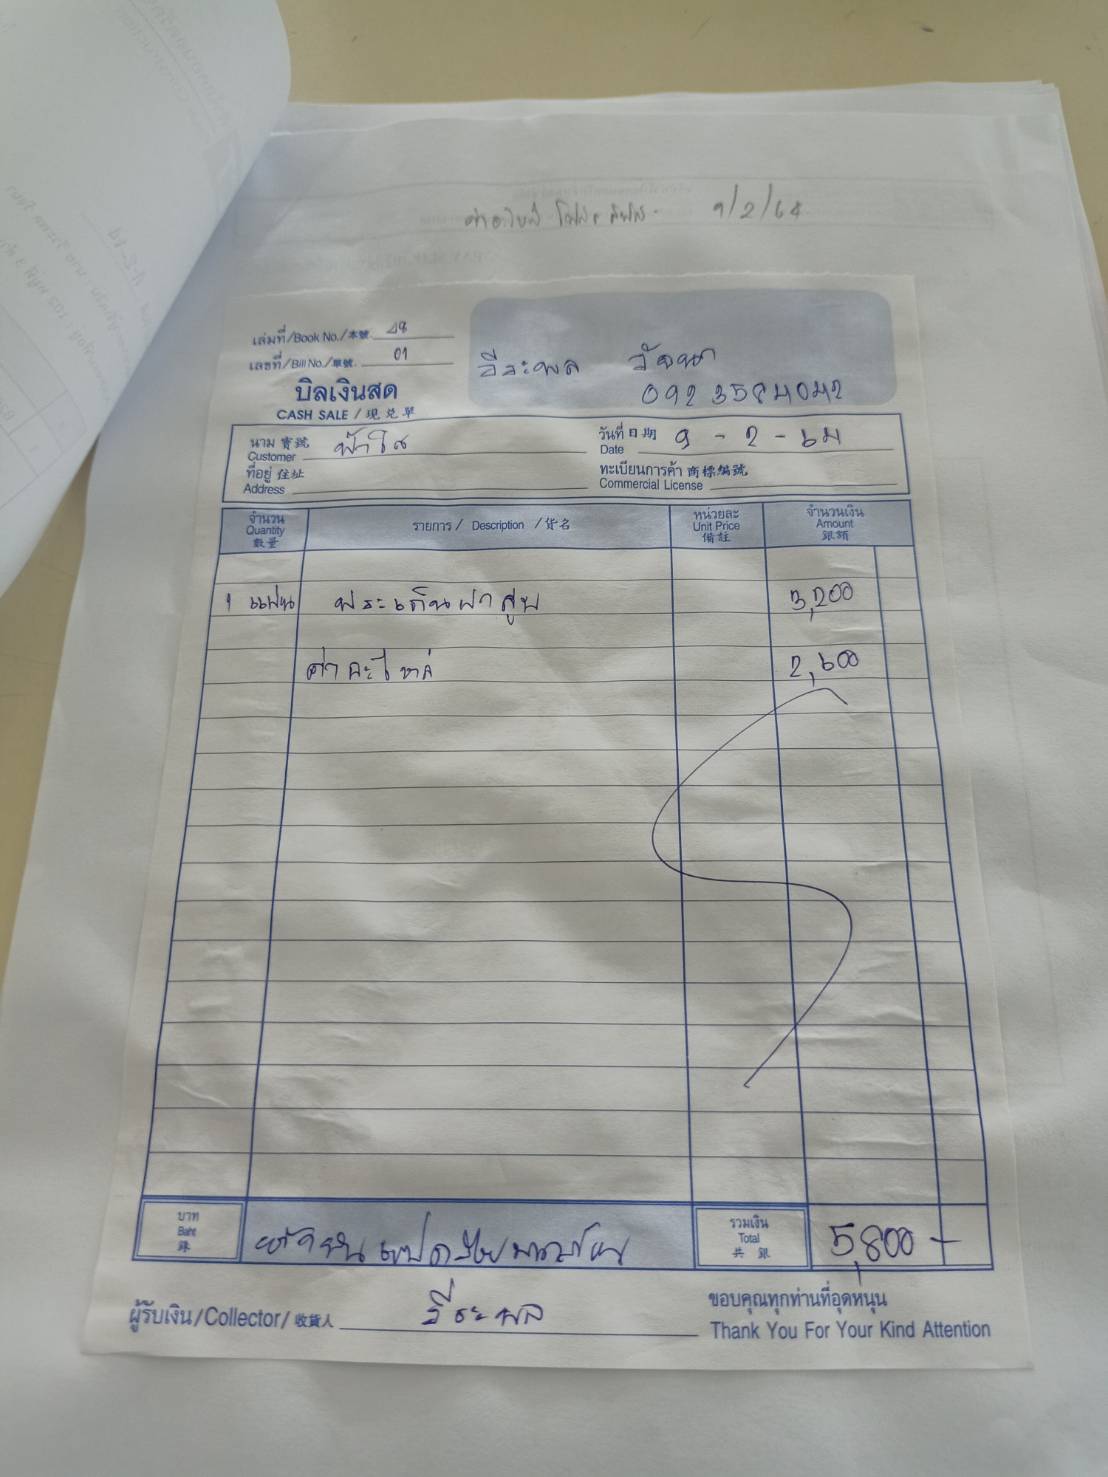 9/2/64
เล่มที่/Book No./本號 48
เลขที่/Bill No./單號 01
บิลเงินสด
CASH SALE / 現兌單
วีระพล
092 3584042
นาม 寶號
Customer ฟ้าใส
วันที่ 日期
Date 9 - 2 - 64
ที่อยู่ 住址
Address
ทะเบียนการค้า 商標編號
Commercial License
จำนวน
Quantity
數量
รายการ / Description / 貨名
หน่วยละ
Unit Price
備註
จำนวนเงิน
Amount
銀額
1 แผ่น 3,200
ค่าอะไหล่ 2,600
บาท
Baht
銖
ห้าพันแปดร้อยบาทถ้วน
รวมเงิน
Total
共 銀
5,800 -
ผู้รับเงิน/Collector/收貨人 วีระพล
ขอบคุณทุกท่านที่อุดหนุน
Thank You For Your Kind Attention